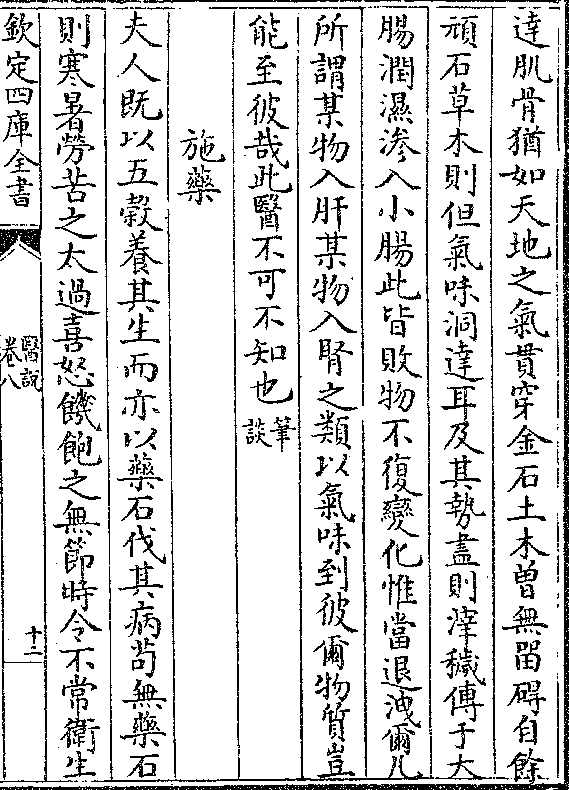 達肌骨猶如天地之氣貫穿金石土木曽無留碍自餘
頑石草木則但氣味洞達耳及其勢盡則滓穢傳于大
腸潤濕滲入小腸此皆敗物不復變化惟當退洩爾凡
所謂某物入肝某物入腎之類以氣味到彼爾物質豈
能至彼哉此醫不可不知也筆談
施藥
夫人既以五穀養其生而亦以藥石伐其病茍無藥石
則寒暑勞苦之太過喜怒饑飽之無節時令不常衛生
欽定四庫全書
醫說
卷八
十二